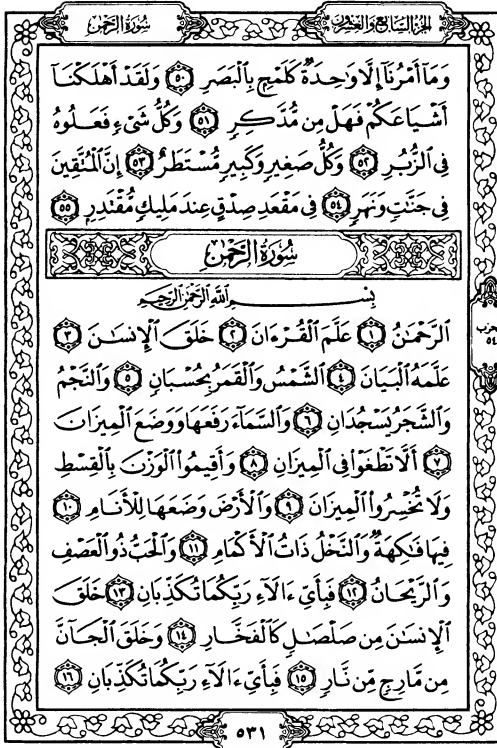 الجزء السابع والعشرون
سورة الرحمن
وَمَآ أَمْرُنَآ إِلَّا وَٰحِدَةٌ كَلَمْحٍۭ بِٱلْبَصَرِ ٥٠ وَلَقَدْ أَهْلَكْنَآ
أَشْيَاعَكُمْ فَهَلْ مِن مُّدَّكِرٍ ٥١ وَكُلُّ شَىْءٍ فَعَلُوهُ
فِى ٱلزُّبُرِ ٥٢ وَكُلُّ صَغِيرٍ وَكَبِيرٍ مُّسْتَطَرٌ ٥٣ إِنَّ ٱلْمُتَّقِينَ
فِى جَنَّٰتٍ وَنَهَرٍ ٥٤ فِى مَقْعَدِ صِدْقٍ عِندَ مَلِيكٍ مُّقْتَدِرٍۭ ٥٥
سُورَةُ الرَّحْمَٰنِ
بِسْمِ ٱللَّهِ ٱلرَّحْمَٰنِ ٱلرَّحِيمِ
ٱلرَّحْمَٰنُ ١ عَلَّمَ ٱلْقُرْءَانَ ٢ خَلَقَ ٱلْإِنسَٰنَ ٣
عَلَّمَهُ ٱلْبَيَانَ ٤ ٱلشَّمْسُ وَٱلْقَمَرُ بِحُسْبَانٍ ٥ وَٱلنَّجْمُ
وَٱلشَّجَرُ يَسْجُدَانِ ٦ وَٱلسَّمَآءَ رَفَعَهَا وَوَضَعَ ٱلْمِيزَانَ
٧ أَلَّا تَطْغَوْا۟ فِى ٱلْمِيزَانِ ٨ وَأَقِيمُوا۟ ٱلْوَزْنَ بِٱلْقِسْطِ
وَلَا تُخْسِرُوا۟ ٱلْمِيزَانَ ٩ وَٱلْأَرْضَ وَضَعَهَا لِلْأَنَامِ ١٠
فِيهَا فَٰكِهَةٌ وَٱلنَّخْلُ ذَاتُ ٱلْأَكْمَامِ ١١ وَٱلْحَبُّ ذُو ٱلْعَصْفِ
وَٱلرَّيْحَانُ ١٢ فَبِأَىِّ ءَالَآءِ رَبِّكُمَا تُكَذِّبَانِ ١٣ خَلَقَ
ٱلْإِنسَٰنَ مِن صَلْصَٰلٍ كَٱلْفَخَّارِ ١٤ وَخَلَقَ ٱلْجَآنَّ
مِن مَّارِجٍ مِّن نَّارٍ ١٥ فَبِأَىِّ ءَالَآءِ رَبِّكُمَا تُكَذِّبَانِ ١٦
حزب
٥٤
٥٣١